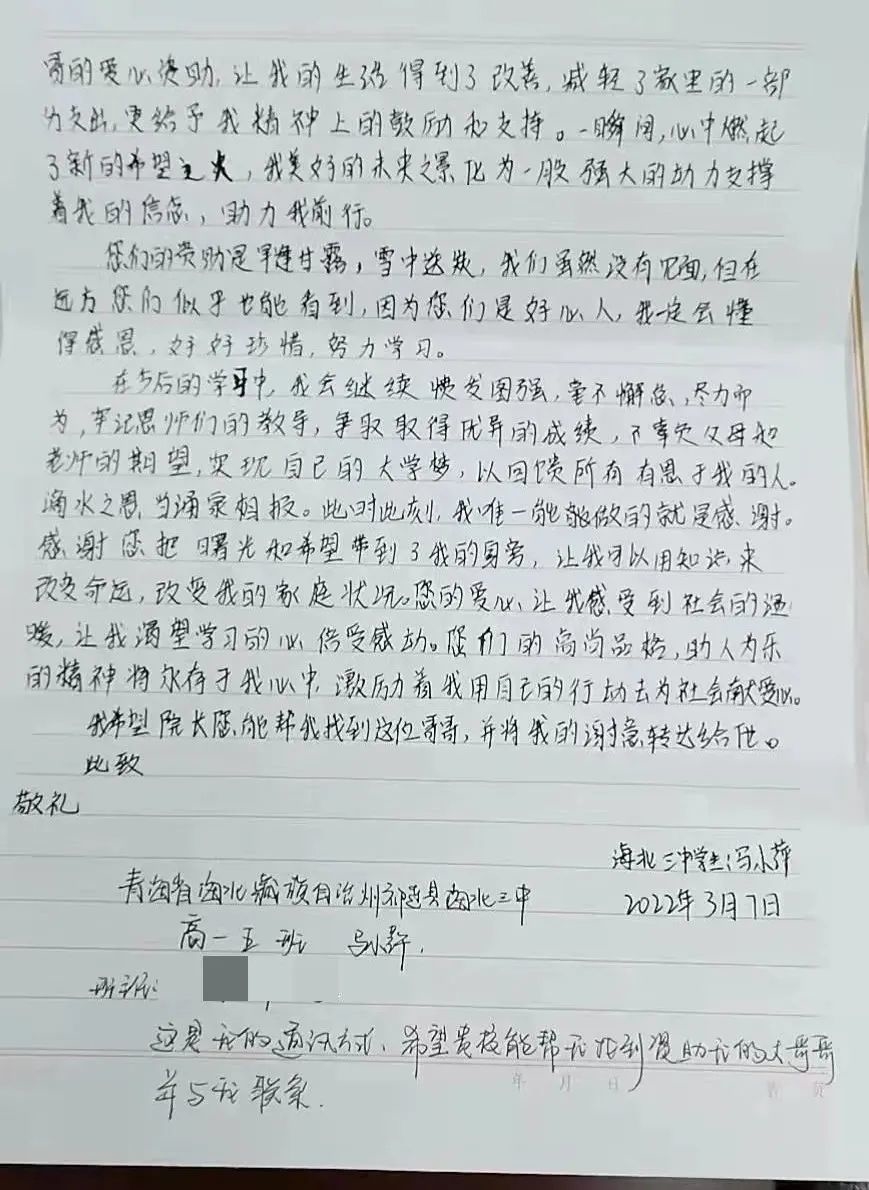 哥的爱心资助,让我的生活得到了改善,减轻了家里的一部
分支出,更给予我精神上的鼓励和支持。一瞬间,心中燃起
了新的希望之火,我美好的未来之景化为一股强大的动力支撑
着我的信念,助力我前行。
您们的资助是旱逢甘露,雪中送炭,我们虽然没有见面,但在
远方您们似乎也能看到,因为您们是好心人,我一定会懂
得感恩,好好珍惜,努力学习。
在今后的学习中,我会继续愤发图强,毫不懈怠,尽力而
为,牢记恩师们的教导,争取取得优异的成绩,不辜负父母和
老师的期望,实现自己的大学梦,以回馈所有有恩于我的人。
滴水之恩,当涌泉相报。此时此刻,我唯一能能做的就是感谢。
感谢您把曙光和希望带到了我的身旁,让我可以用知识来
改变命运,改变我的家庭状况。您的爱心,让我感受到社会的温
暖,让我渴望学习的心倍受感动。您们的高尚品格,助人为乐
的精神将永存于我心中,激励着我用自己的行动去为社会献爱心。
我希望院长您能帮我找到这位哥哥,并将我的谢意转达给他。
此致
敬礼
海北三中学生:冯小萍
2022年3月7日
青海省海北藏族自治州祁连县海北三中
高一五班
班主任:
这是我的通讯方式,希望贵校能帮我找到资助我的大哥哥
并与我联系.
年 月 日
第 页